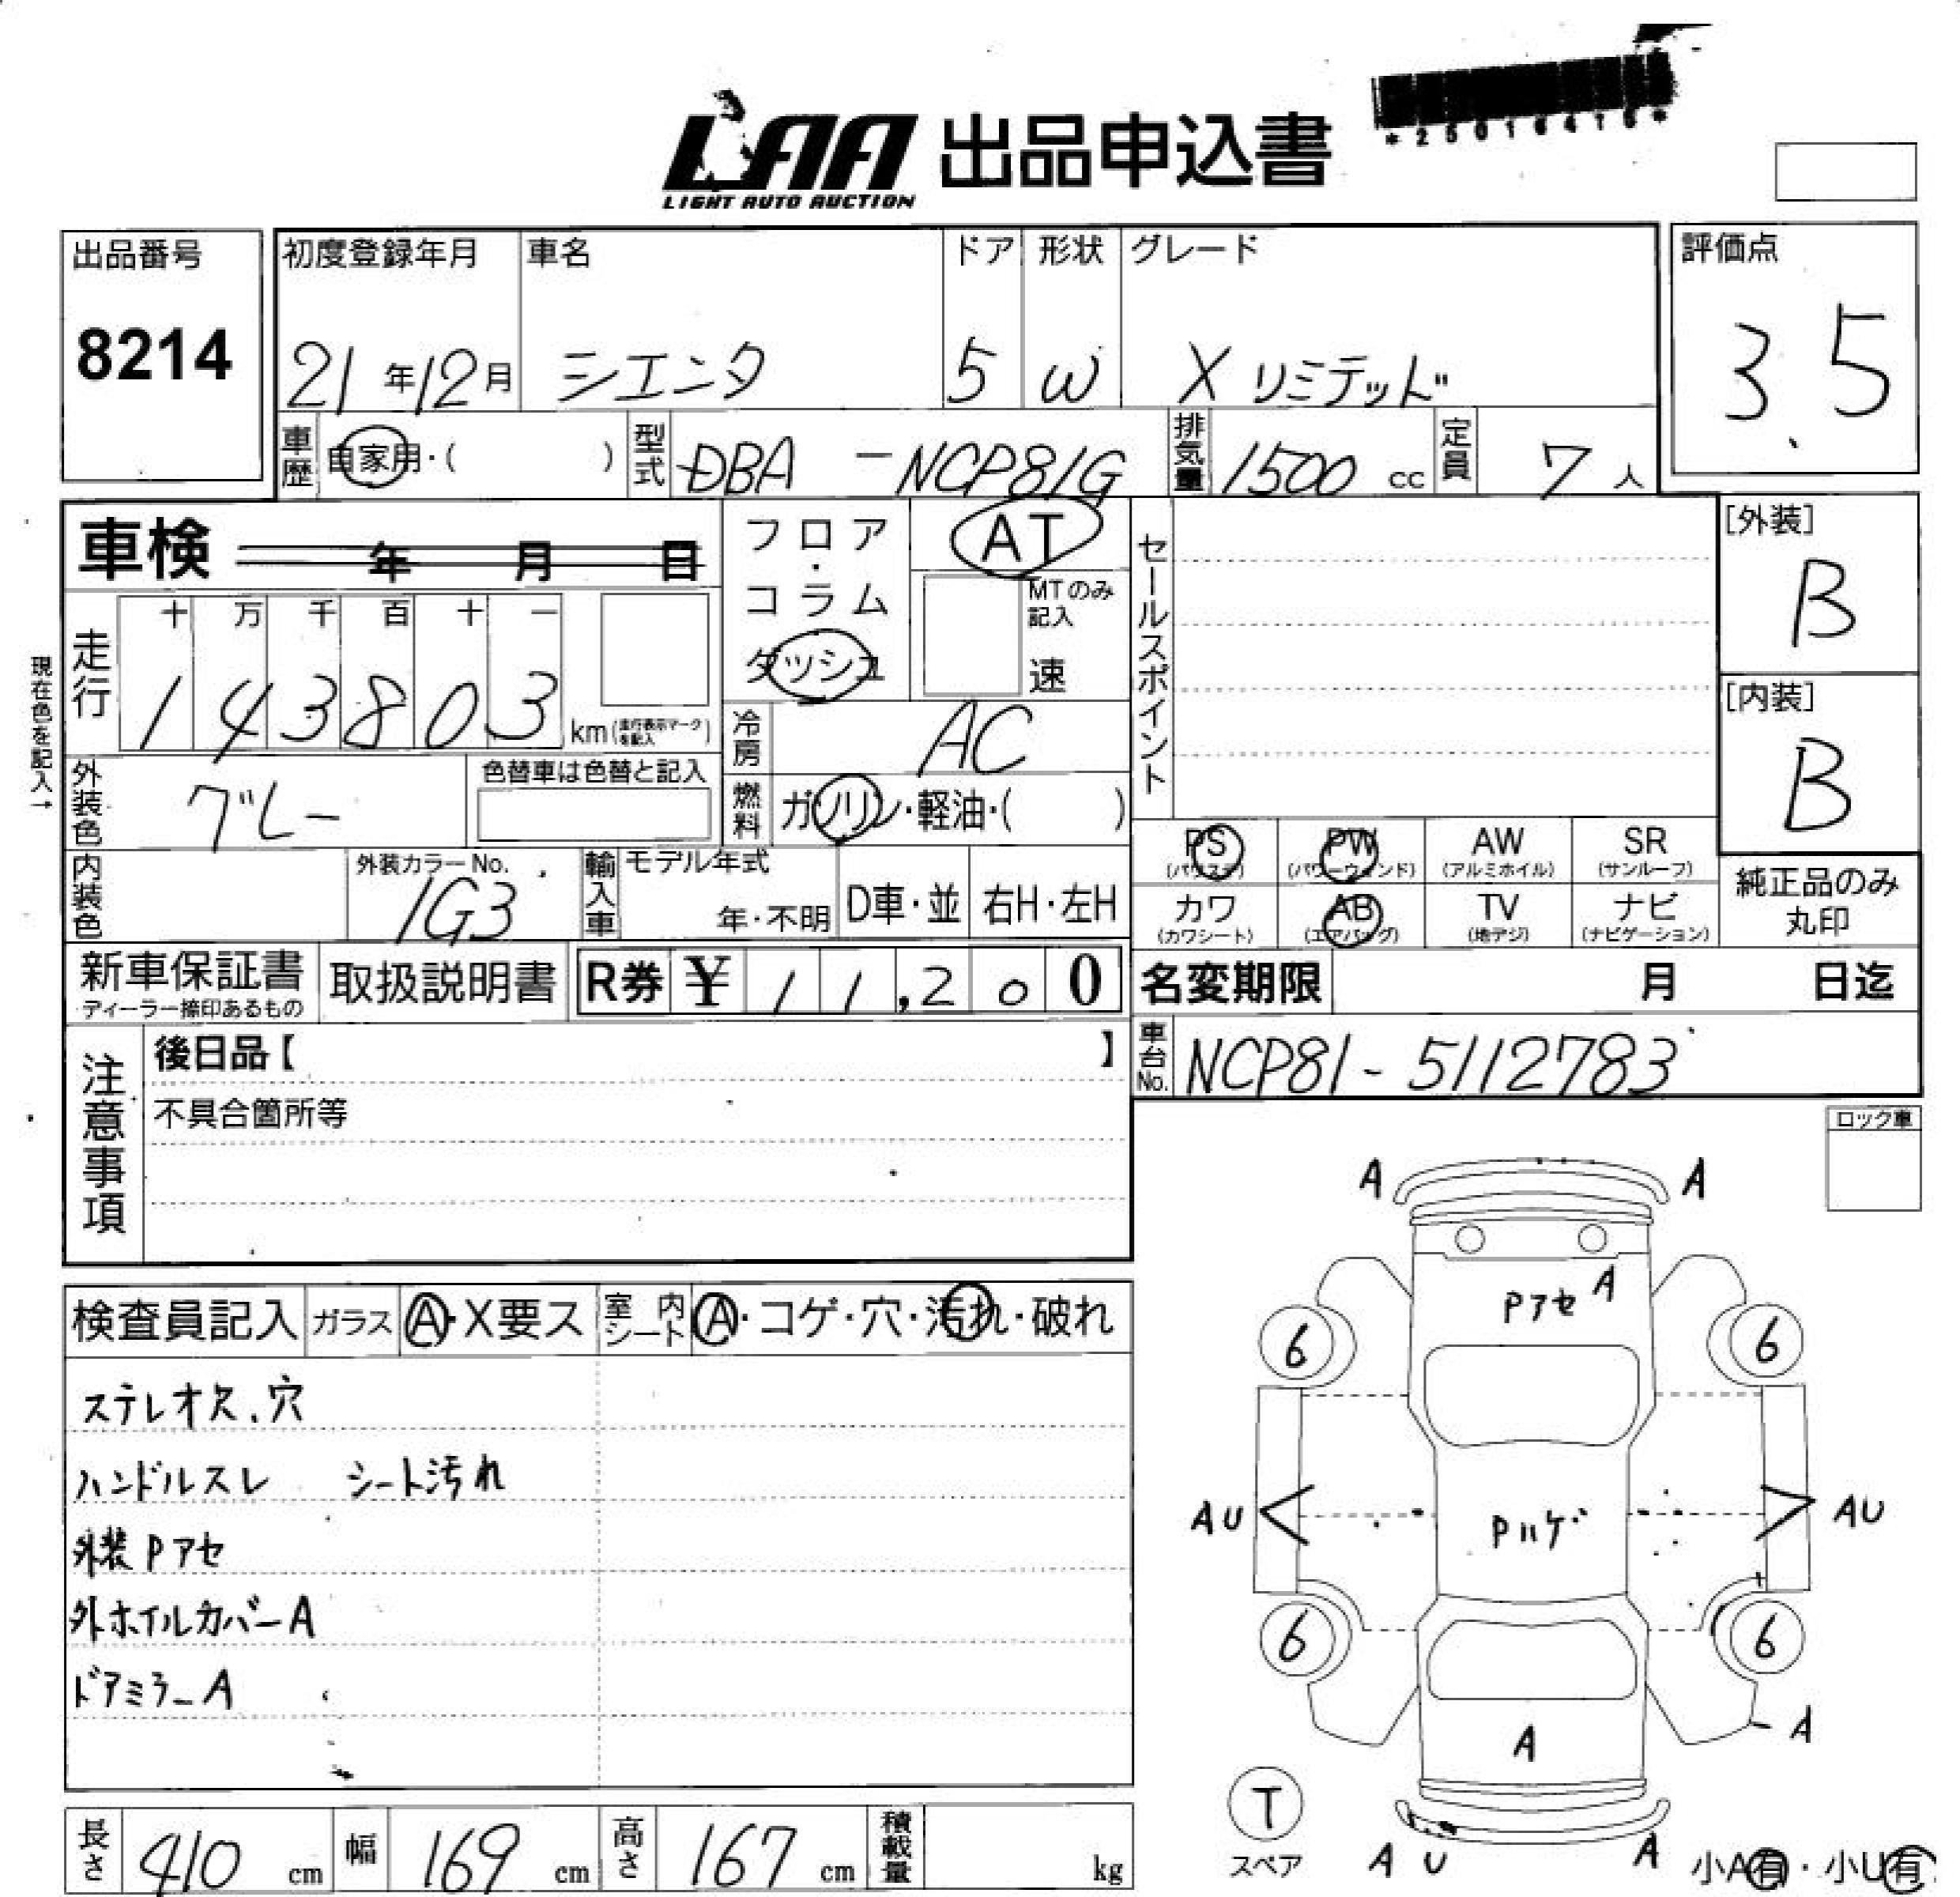 LAA 出品申込書
LIGHT AUTO AUCTION
*25016416*
出品番号
8214
初度登録年月
21年12月
車名
シエンタ
ドア
5
形状
W
グレード
X リミテッド
評価点
3.5
車歴
自家用・( )
型式
DBA-NCP81G
排気量
1500 cc
定員
7人
車検 年 月 日
フロア・コラム
ダッシュ
AT
MTのみ記入
速
セールスポイント
[外装]
B
[内装]
B
現在色を記入→
走行
十 万 千 百 十 一
1 4 3 8 0 3
km(走行表示マークを記入)
冷房
AC
外装色
グレー
色替車は色替と記入
燃料
ガソリン・軽油・( )
内装色
外装カラーNo.
1G3
輸入車
モデル年式
年・不明
D車・並
右H・左H
PS
(パワステ)
PW
(パワーウインド)
AW
(アルミホイル)
SR
(サンルーフ)
カワ
(カワシート)
AB
(エアバッグ)
TV
(地デジ)
ナビ
(ナビゲーション)
純正品のみ
丸印
新車保証書
ディーラー捺印あるもの
取扱説明書
R券 ¥ 11,200
名変期限 月 日迄
車台No.
NCP81-5112783
注意事項
後日品【 】
不具合箇所等
ロック車
検査員記入
ガラス
A・X要ス
室内シート
A・コゲ・穴・汚れ・破れ
ステレオ欠、穴
ハンドルスレ シート汚れ
外装Pアセ
外ホイルカバーA
ドアミラーA
A A
Pアセ A
6 6
AU Pハゲ AU
6 6
A
A
T
スペア
A U A
小A有・小U有
長さ 410 cm
幅 169 cm
高さ 167 cm
積載量 kg